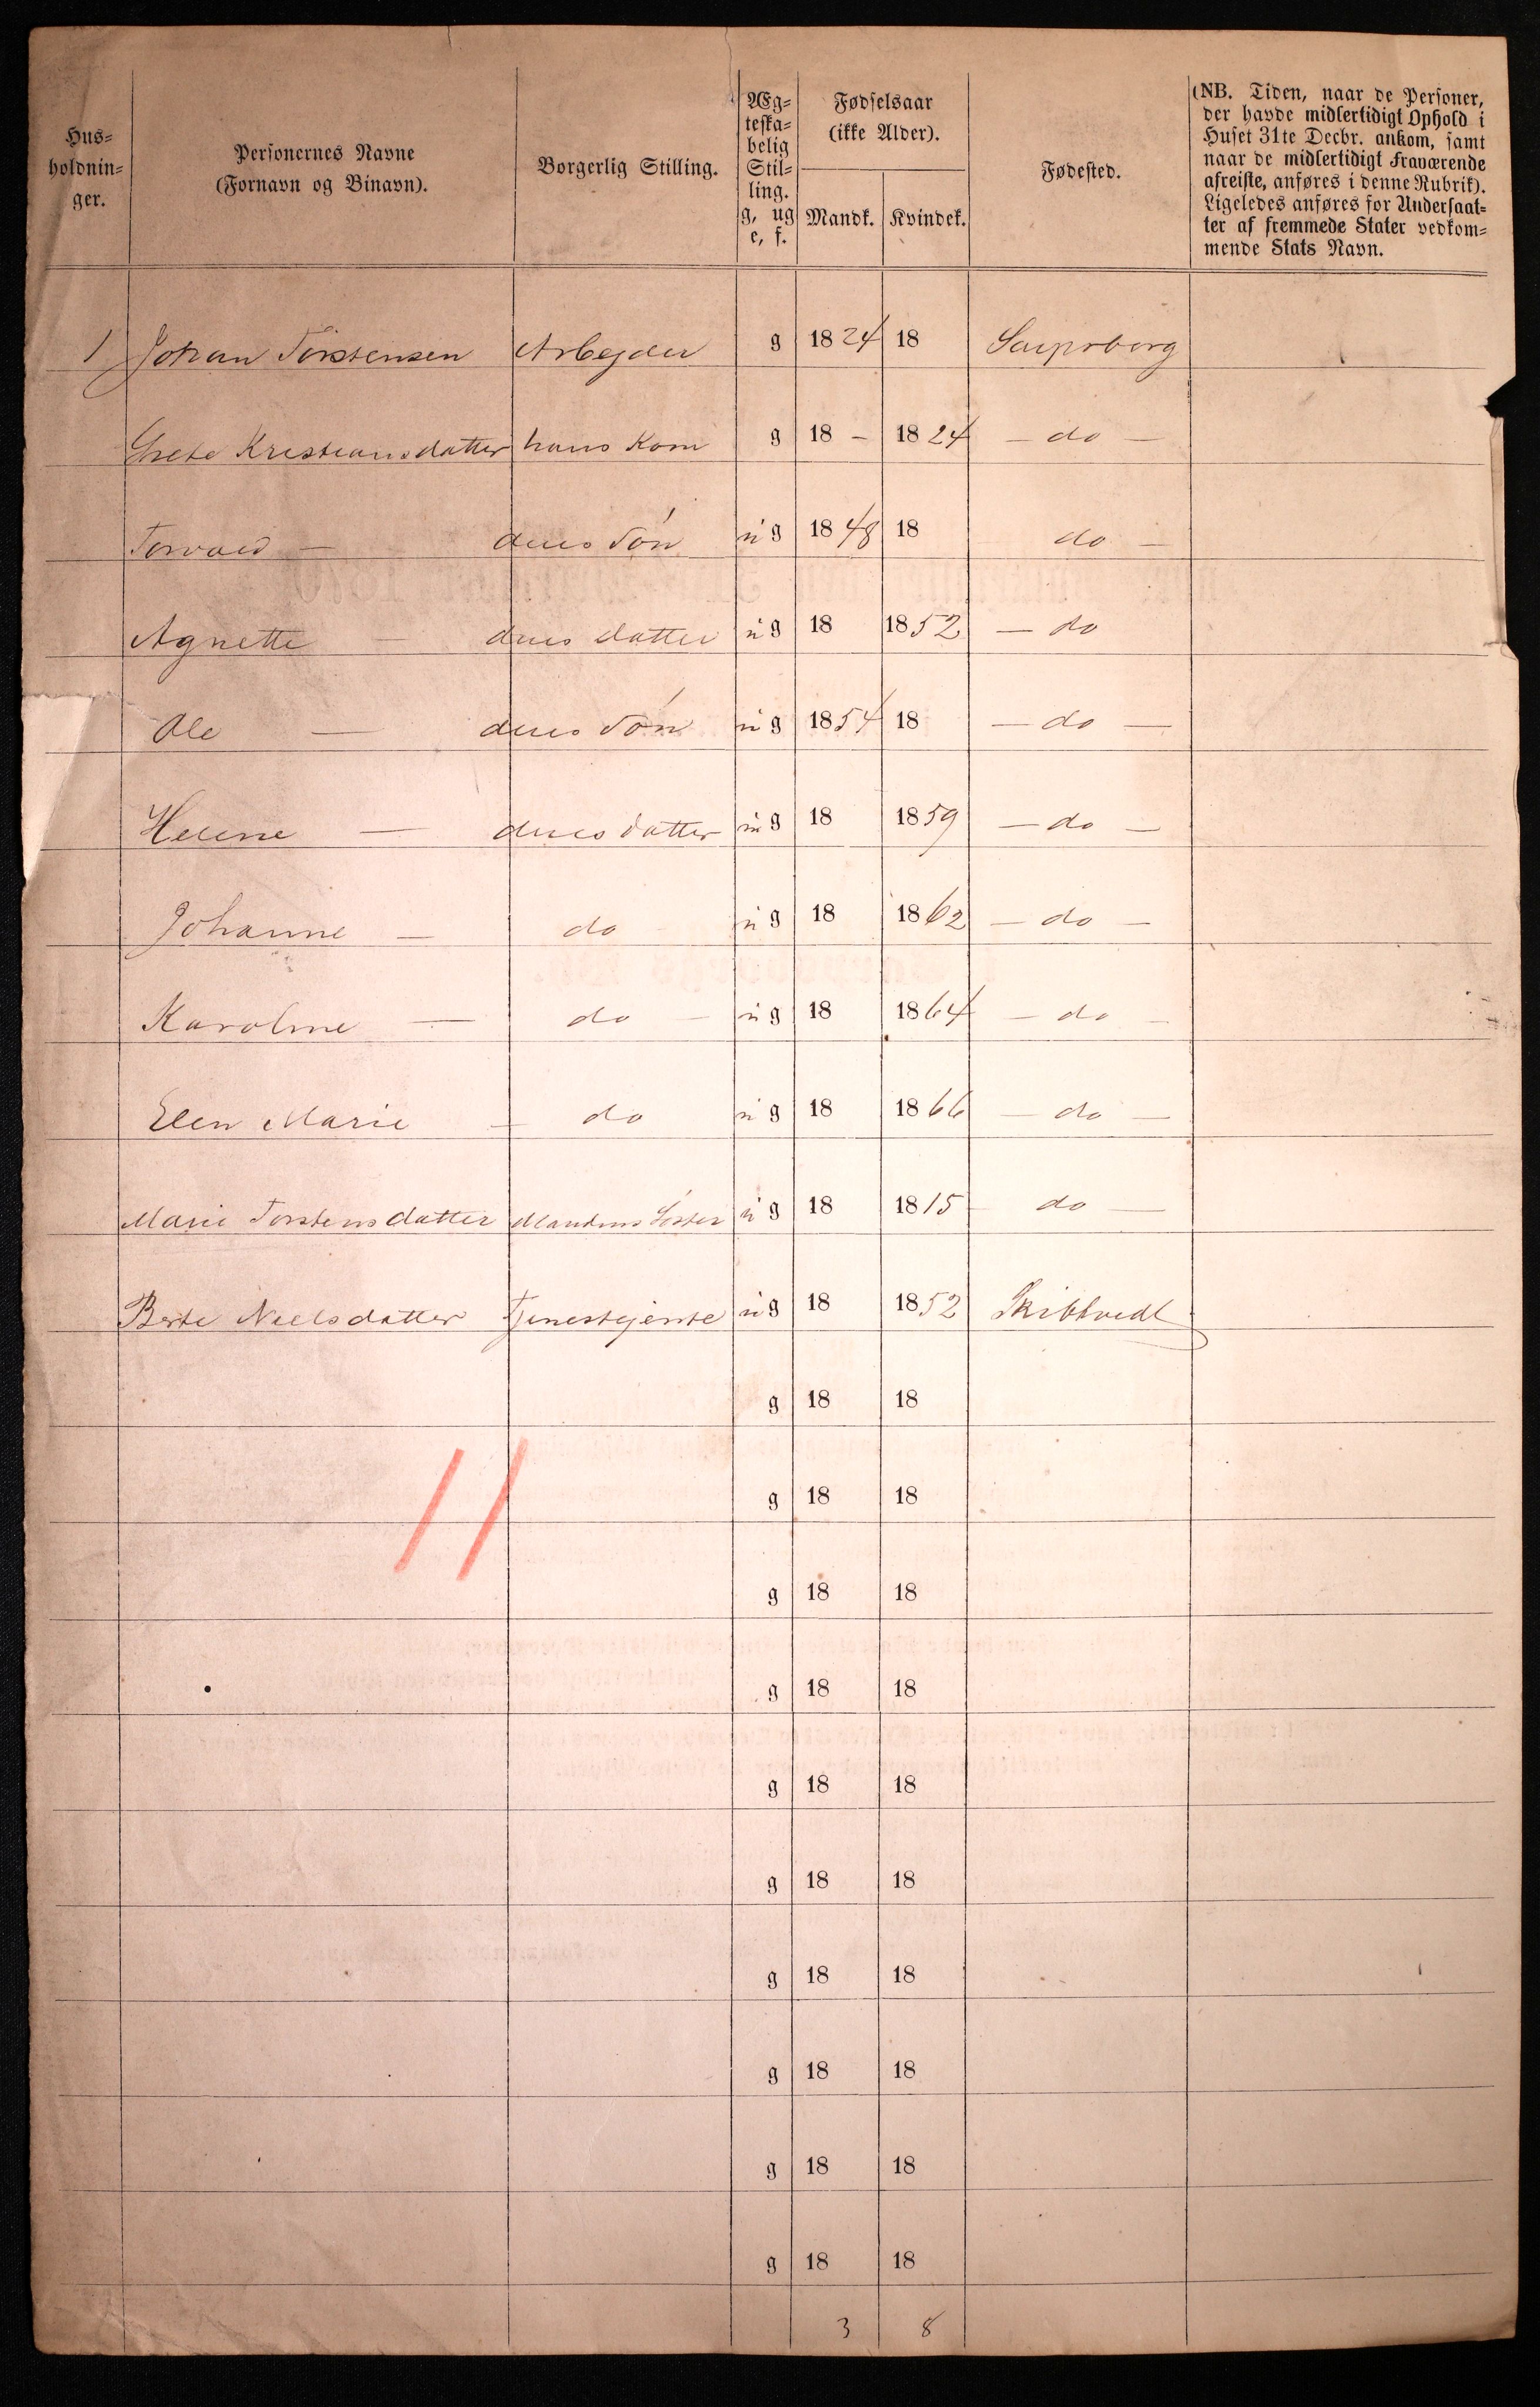 Hus-
holdnin-
ger.
Personernes Navne
(Fornavn og Binavn).
Borgerlig Stilling.
Æg-
teska-
belig
Stil-
ling.
g, ug
e, f.
Fødselsaar
(ikke Alder).
Mandk.
Kvindek.
Fødested.
(NB. Tiden, naar de Personer,
der havde midlertidigt Ophold i
Huset 31te Decbr. ankom, samt
naar de midlertidigt Fraværende
afreiste, anføres i denne Rubrik).
Ligeledes anføres for Undersaat-
ter af fremmede Stater vedkom-
mende Stats Navn.
1 Johan Torstensen Arbejder g 1824 18 Sarpsborg
Grete Kristiansdatter hans Kone g 18 – 1824 – do –
Torvald – deres Søn ug 1848 18 do –
Agnette – deres datter ug 18 1852 – do
Ole – deres Søn ug 1854 18 – do –
Helene – deres datter ug 18 1859 – do –
Johanne – do ug 18 1862 – do –
Karoline – do – ug 18 1864 – do –
Elen Marie – do ug 18 1866 – do –
Marie Torstensdatter Mandens Søster ug 18 1815 do –
Berte Nielsdatter Tjenestejente ug 18 1852 Skibtvedt
g 18 18
11
g 18 18
g 18 18
g 18 18
g 18 18
g 18 18
g 18 18
g 18 18
g 18 18
g 18 18
3 8